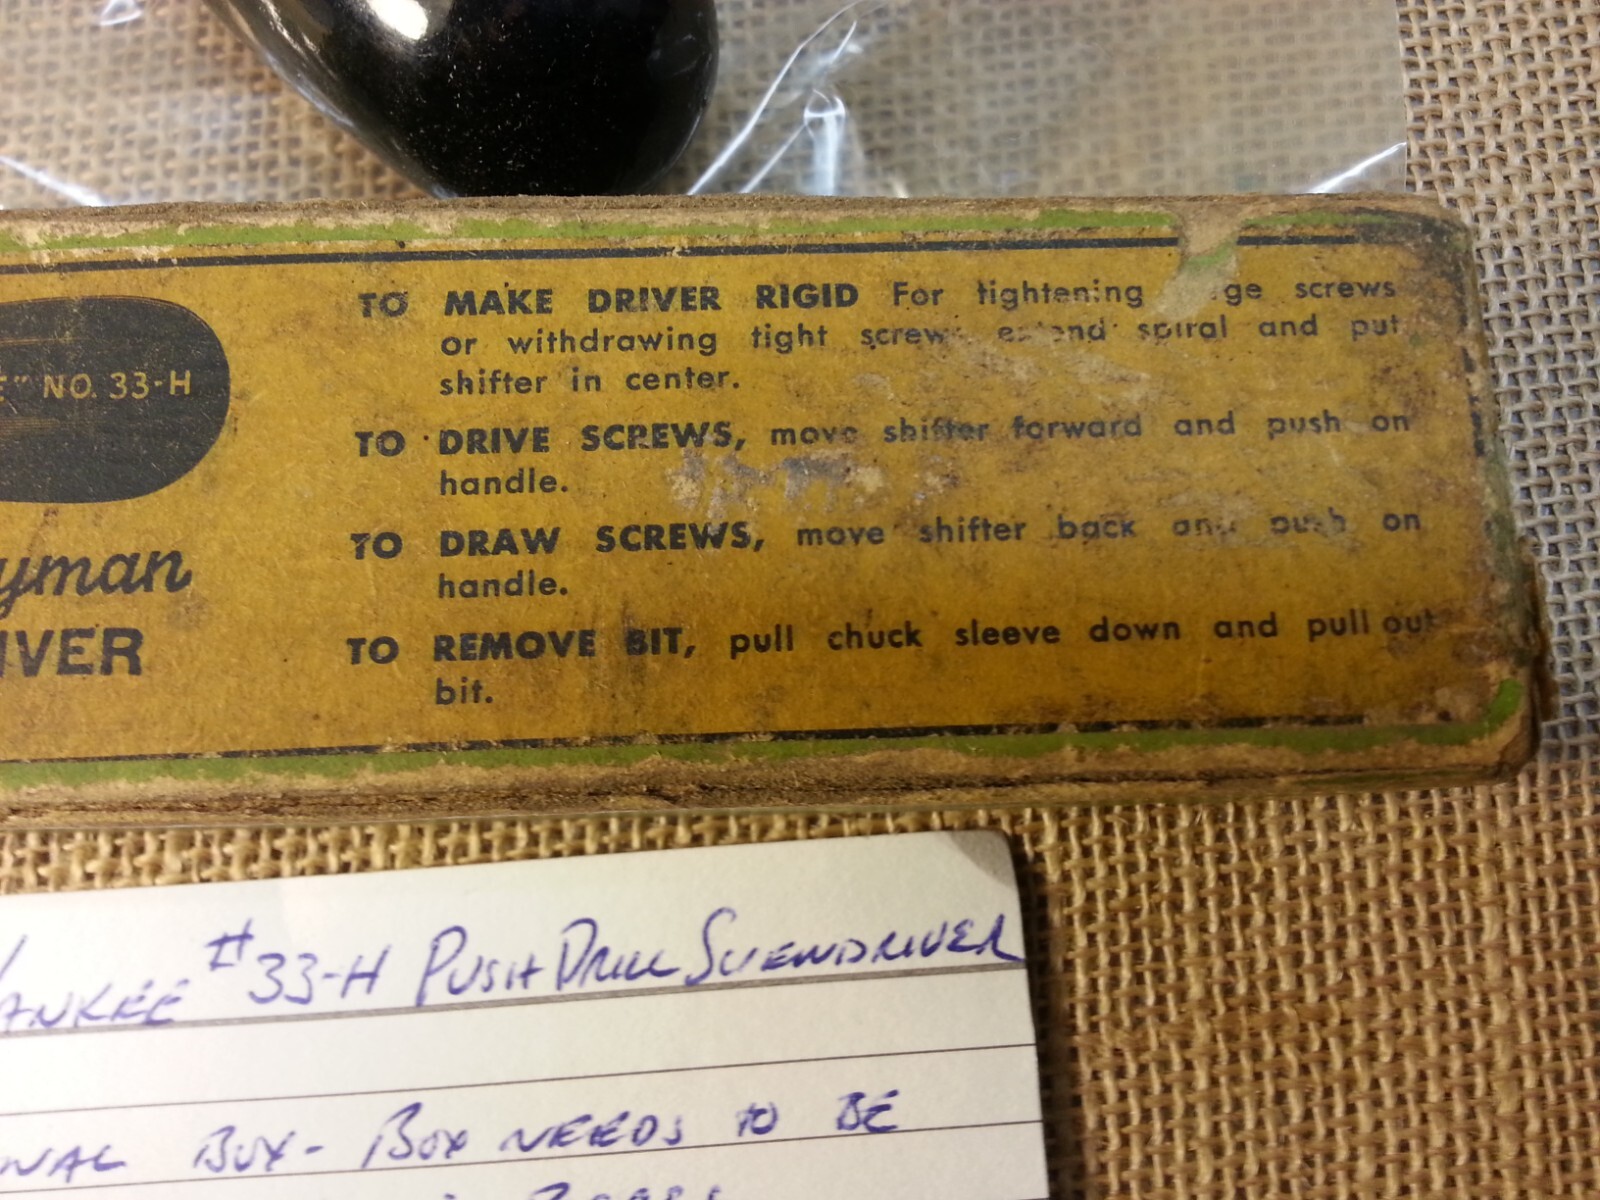 TO MAKE DRIVER RIGID For tightening screws
or withdrawing tight screws extend spiral and put
shifter in center.
NO. 33-H
TO DRIVE SCREWS, move shifter forward and push on
handle.
TO DRAW SCREWS, move shifter back and push on
handle.
yman
IVER
TO REMOVE BIT, pull chuck sleeve down and pull out
bit.
ANKEE #33-H PUSH DRILL SCREWDRIVER
NAL BOX - BOX NEEDS TO BE